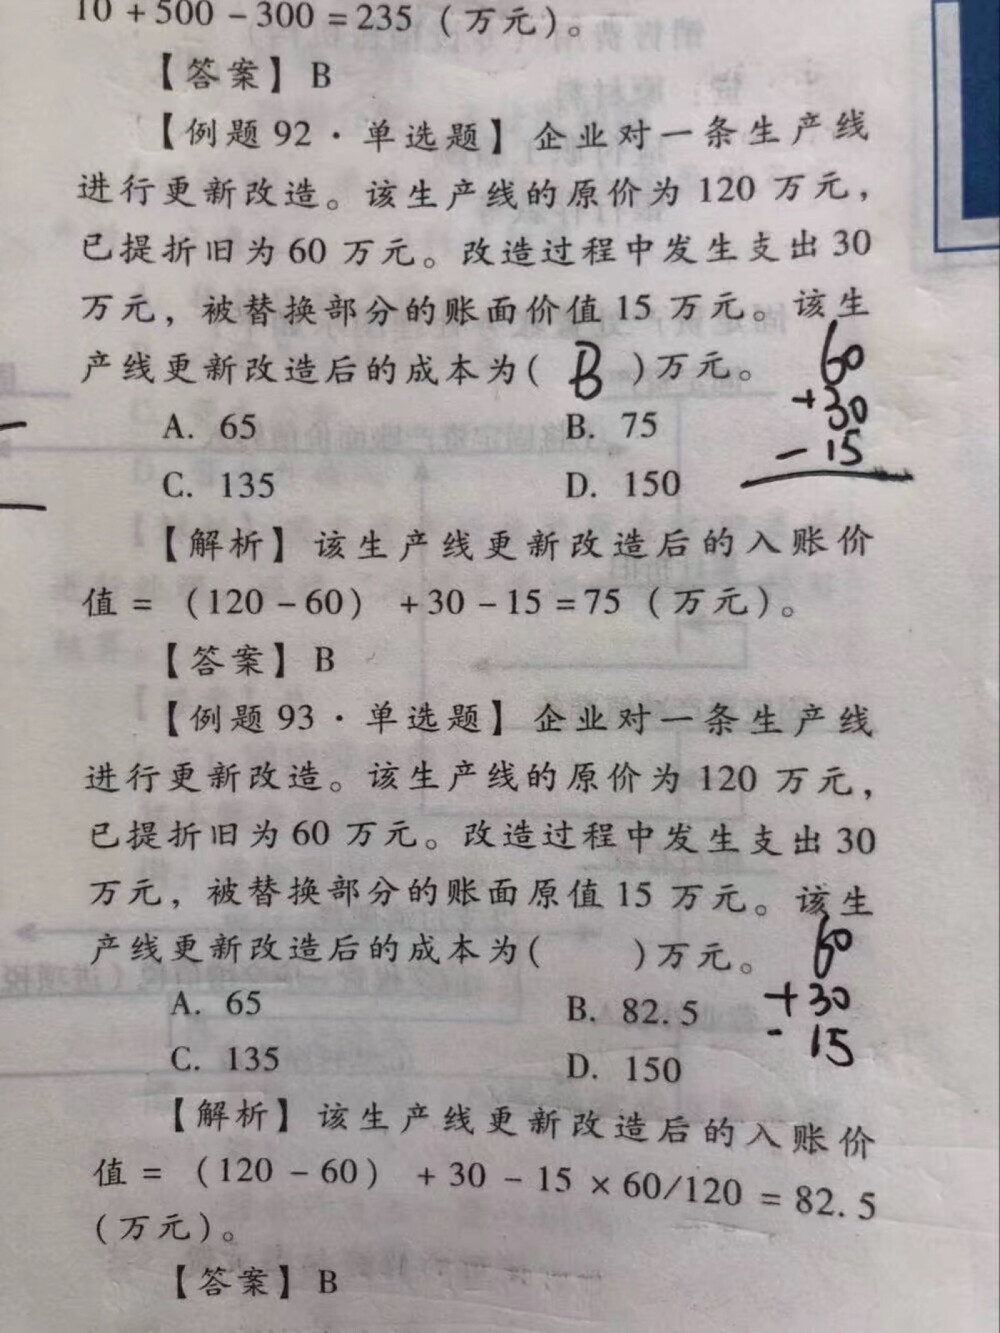 10 + 500 - 300 = 235 (万元)。
【答案】B
【例题 92 · 单选题】企业对一条生产线
进行更新改造。该生产线的原价为 120 万元，
已提折旧为 60 万元。改造过程中发生支出 30
万元，被替换部分的账面价值 15 万元。该生
产线更新改造后的成本为( B )万元。
60
+30
-15
A. 65
B. 75
C. 135
D. 150
【解析】该生产线更新改造后的入账价
值 = (120 - 60) + 30 - 15 = 75 (万元)。
【答案】B
【例题 93 · 单选题】企业对一条生产线
进行更新改造。该生产线的原价为 120 万元，
已提折旧为 60 万元。改造过程中发生支出 30
万元，被替换部分的账面原值 15 万元。该生
产线更新改造后的成本为( )万元。
60
+30
-15
A. 65
B. 82.5
C. 135
D. 150
【解析】该生产线更新改造后的入账价
值 = (120 - 60) + 30 - 15 × 60/120 = 82.5
(万元)。
【答案】B